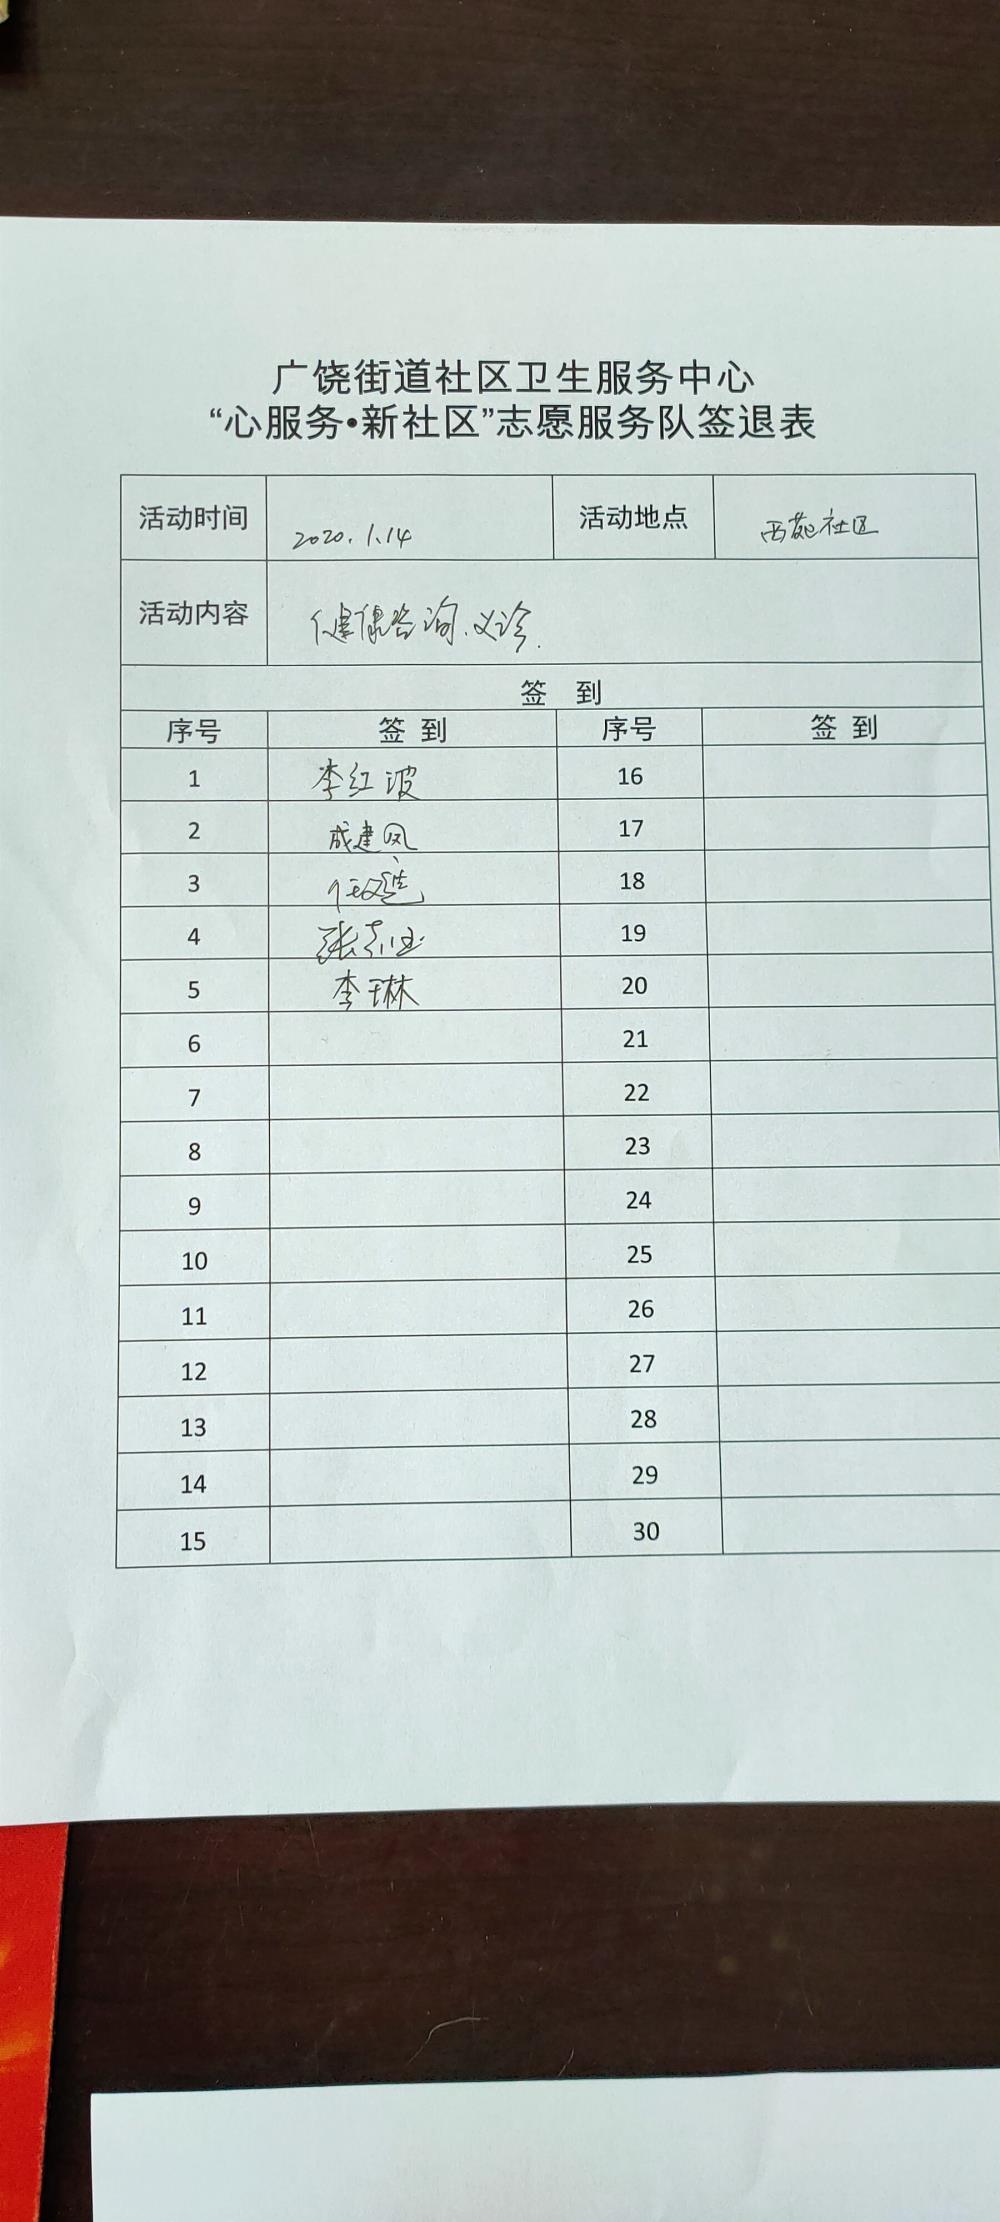 广饶街道社区卫生服务中心
“心服务•新社区”志愿服务队签退表
活动时间 2020.1.14 活动地点 西苑社区
活动内容 健康咨询、义诊.
签 到
序号 签 到 序号 签 到
1 李红波 16
2 成建凤 17
3 18
4 张 19
5 李琳 20
6 21
7 22
8 23
9 24
10 25
11 26
12 27
13 28
14 29
15 30